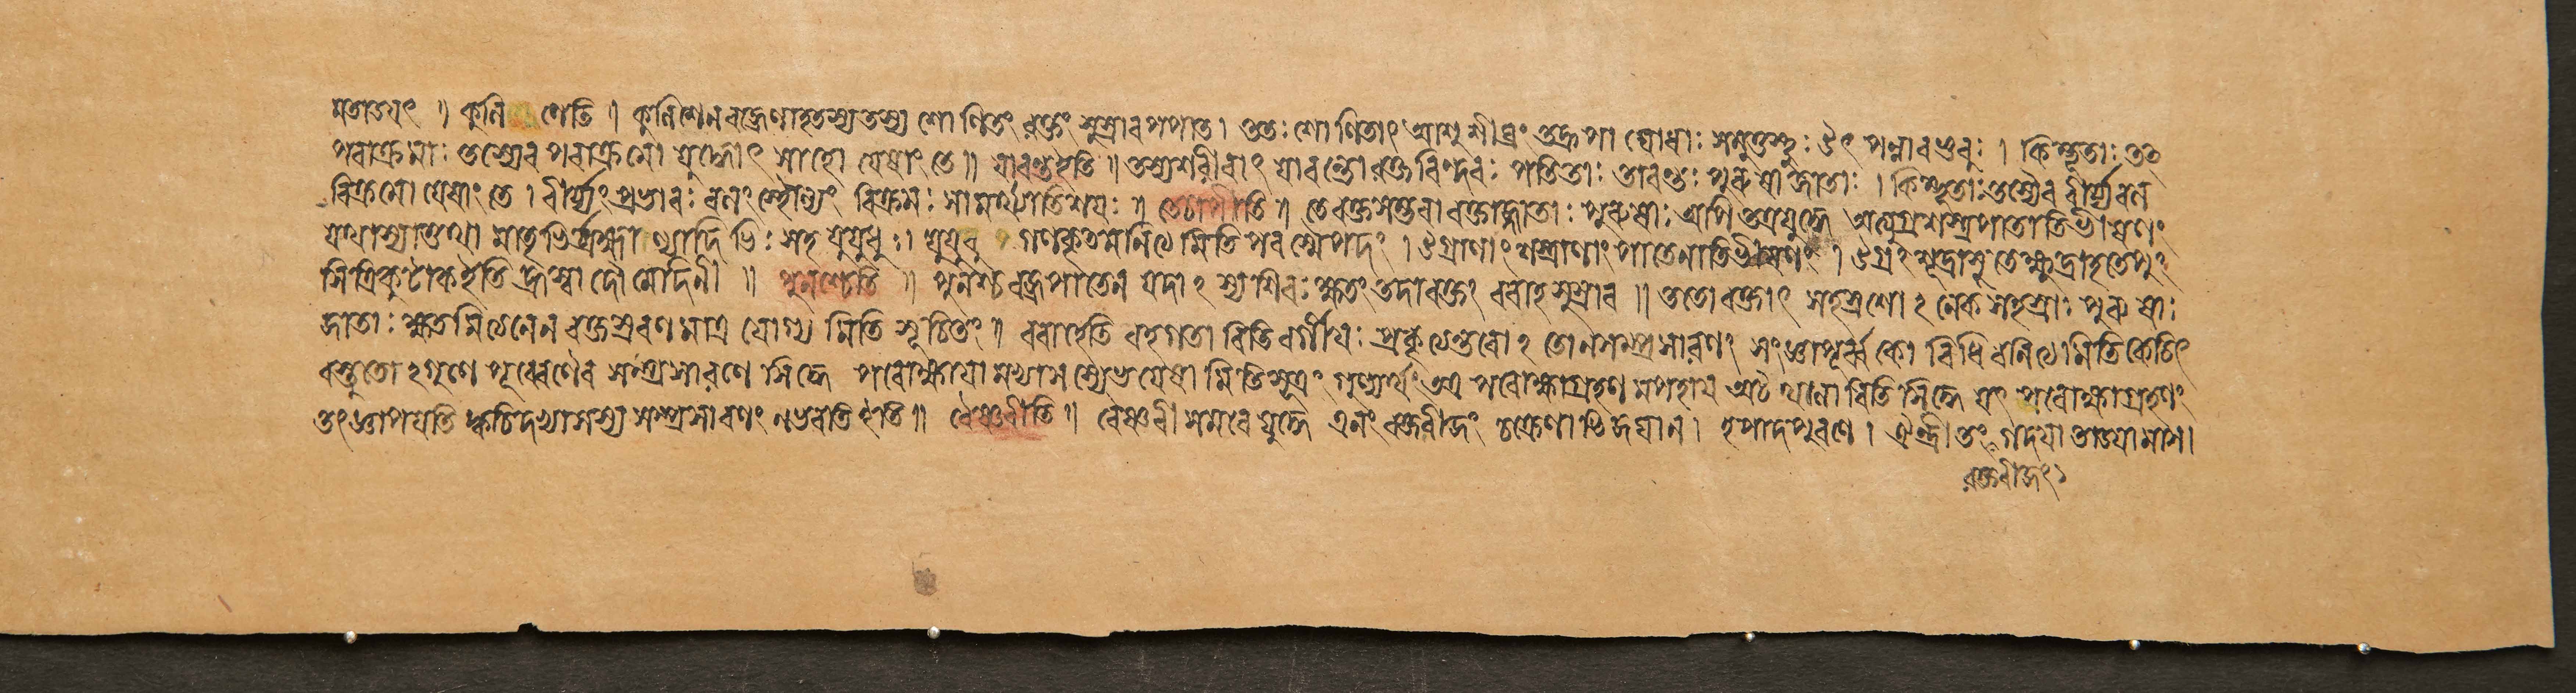 মতাড়য়ৎ ॥ কুলিশেতি ॥ কুলিশেন বজ্রেণাহতস্য তস্য শোণিতং রক্তং সুস্রাব পপাত। ততঃ শোণিতাৎ আশু শীঘ্রং তদ্রূপা যোধাঃ সমুত্তস্থুঃ উৎপন্না বভুবুঃ । কিম্ভূতাঃ তৎ
পরাক্রমাঃ তস্যেব পরাক্রমো যুদ্ধোৎসাহো যেষাং তে ॥ যাবন্তইতি ॥ তস্য শরীরাৎ যাবন্তো রক্তবিন্দবঃ পতিতাঃ তাবন্তঃ পুরুষা জাতাঃ । কিম্ভূতাঃ তস্যৈব বীর্য্যবল
বিক্রমো যেষাং তে । বীর্য্যং প্রভাবঃ বলং স্থৌল্যং বিক্রমঃ সামর্থ্যাতিশয়ঃ ॥ তেচাপীতি ॥ তে রক্তসম্ভবা রক্তাজ্জাতাঃ পুরুষাঃ অপি তত্র যুদ্ধে অত্যুগ্রশস্ত্রপাতাতিভীষণং
যথাস্যাত্তথা মাতৃভির্ব্রহ্মাণ্যাদিভিঃ সহ যুযুধুঃ । যুযুধু গণকৃতমনিত্যমিতি পরস্মৈপদং । উগ্রাণাং শস্ত্রাণাং পাতেনাতিভীষণং । উগ্রঃ শূদ্রাসুতে ক্ষত্রাদ্রুদ্রে পুং
সি ত্রিষুৎকটইতি হ্রস্বাদৌ মেদিনী ॥ পুনশ্চেতি ॥ পুনশ্চ বজ্রপাতেন যদা ঽস্য শিরঃ ক্ষতং তদা রক্তং ববাহ সুস্রাব ॥ ততো রক্তাৎ সহস্রশো ঽনেকসহস্রাঃ পুরুষাঃ
জাতাঃ ক্ষতমিত্যনেন রক্তস্রবণমাত্র যোগ্য মিতি সূচিতং ॥ ববাহেতি বহগতা বিতি বর্গীয়ঃ প্রকৃত্যন্তরো ঽতোনসম্প্রসারণং সংজ্ঞাপূর্ব্বকো বিধিরনিত্যোমিতি কেচিৎ
বস্তুতো ঽগুণে পূর্ব্বেণৈব সম্প্রসারণে সিদ্ধে পরোক্ষায়া মভ্যাসস্যোভয়েষামিতিসূত্রং গুণ্যর্থং অত্র পরোক্ষাগ্রহণ মপহায় অচৈ থাণাবিতি সিদ্ধে যৎ পরোক্ষাগ্রহণং
তৎজ্ঞাপয়তি ক্বচিদভ্যাসস্য সম্প্রসারণং নভবতি ইতি ॥ বৈষ্ণবীতি ॥ বৈষ্ণবী সমরে যুদ্ধে এনং রক্তবীজং চক্রেণাভিজঘান । হপাদপূরণে । ঐন্দ্রী তং গদয়া তাড়য়ামাস।
রক্তবীজং২